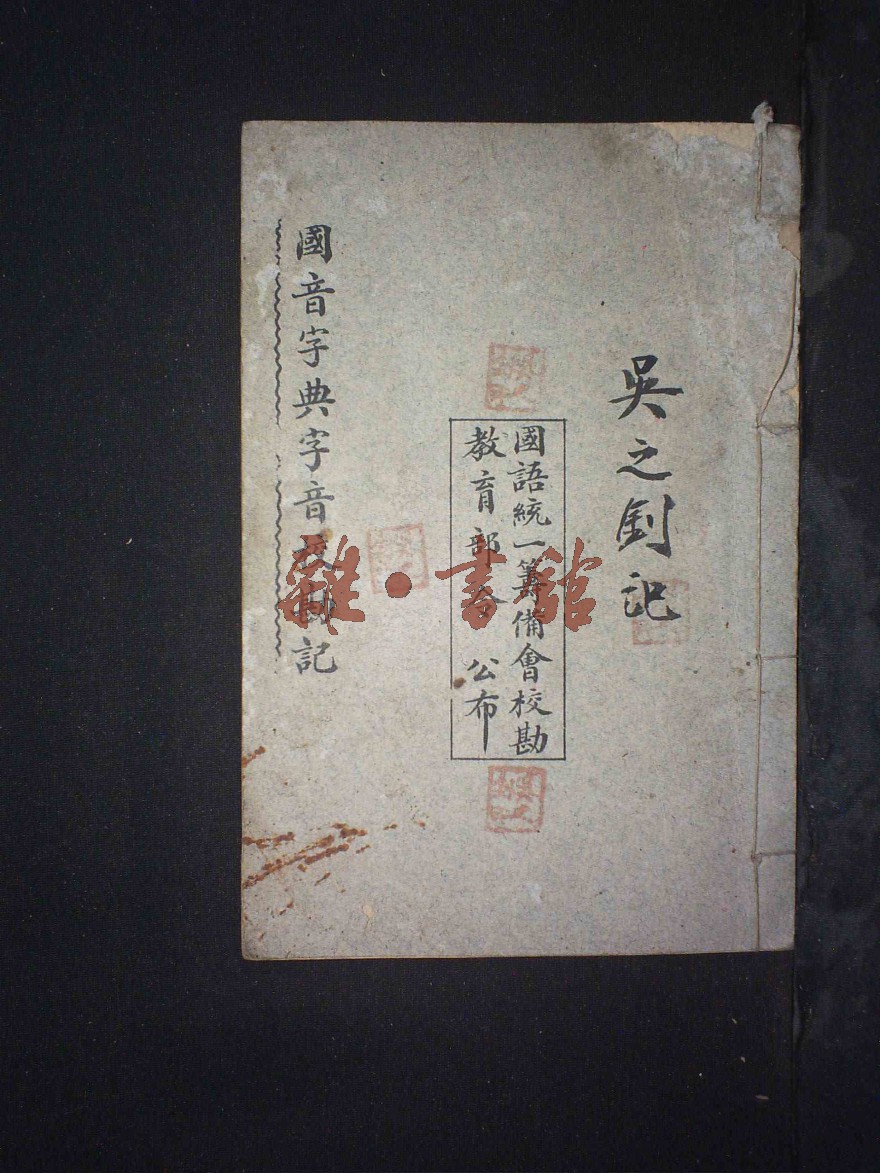 吳之釗記
國語統一籌備會校勘
教育部令 公布
國音字典字音校勘記
雜·書館